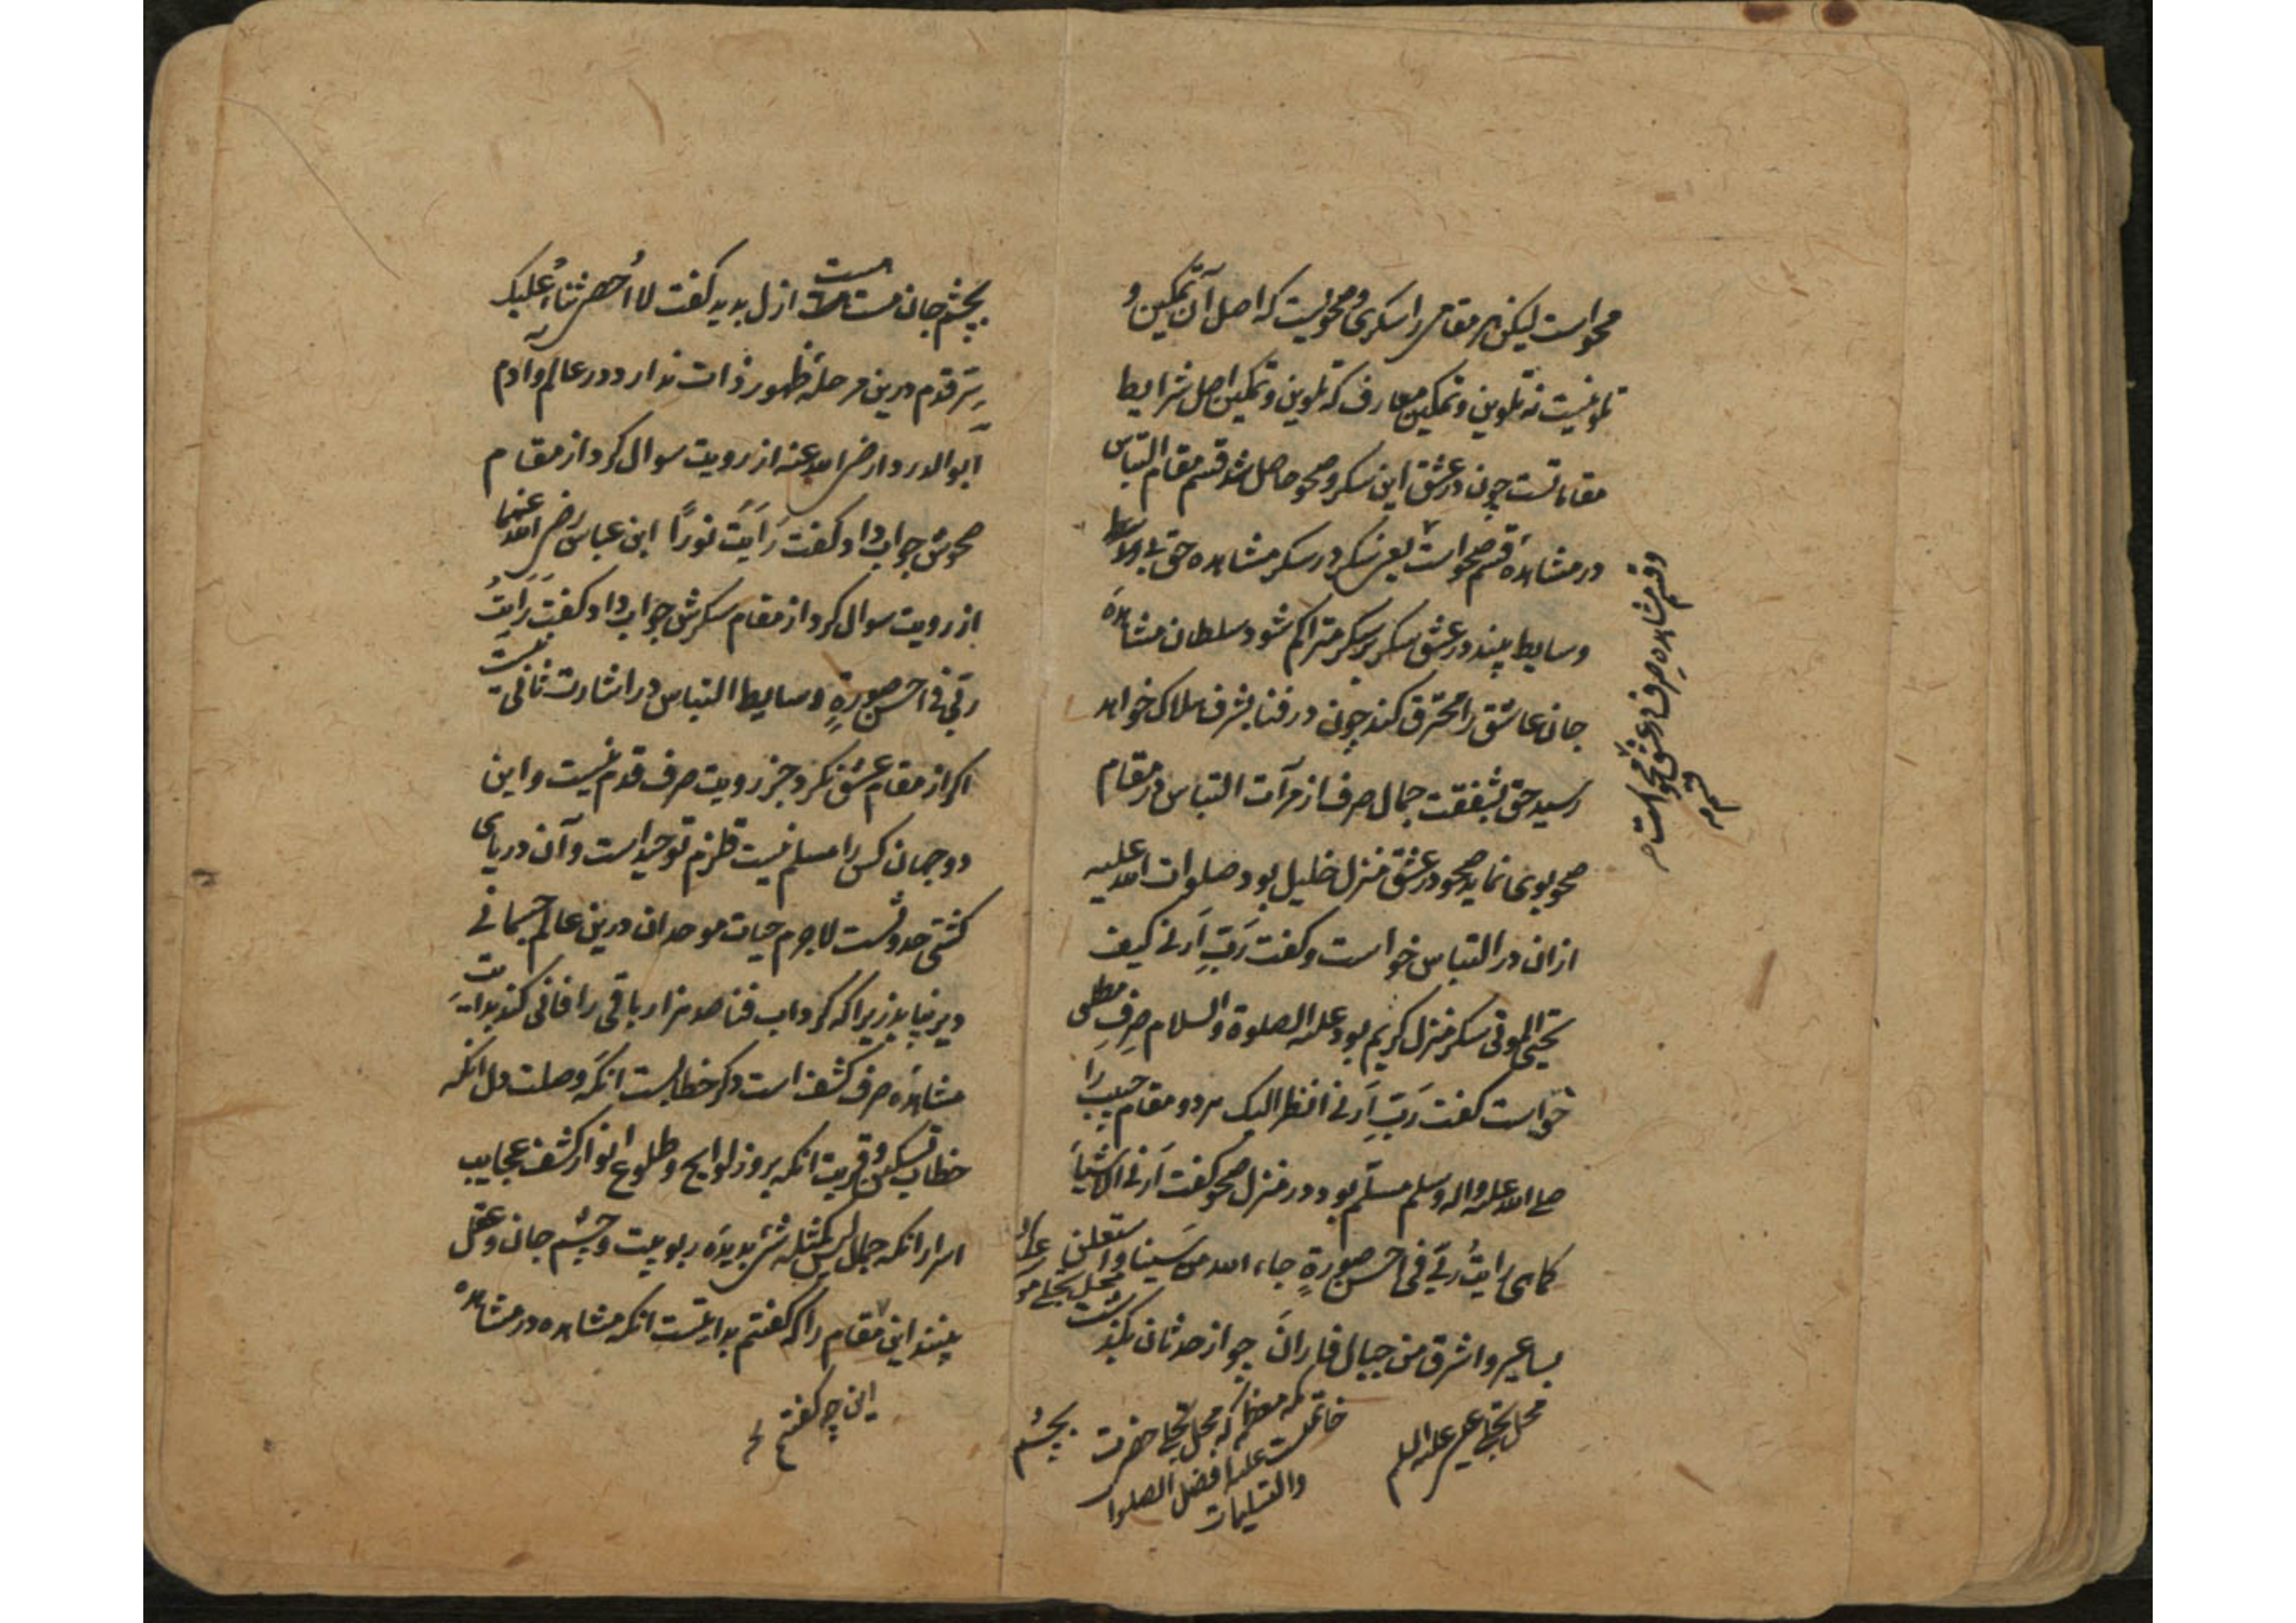 محو است لیکن هر مقامی را سکری و محویست که اصل آن تمکین و
تلوینست نه تلوین و تمکین معارف که تلوین و تمکین اصل شرایط
مقاماتست چون در عشق این سکر و صحو حاصل شد قسم مقام التباس
در مشاهده قسم صحو است یعنی سکر در سکر مشاهده حق بی
وسایط بیند در عشق سکر بر سکر متراکم شود سلطان مشاهده
جان عاشق را محترق کند چون در فنا بشرف هلاک خواهد
رسید حق بشفقت جمال صرف از مرآت التباس در مقام
صحو بوی نماید صحو در عشق منزل خلیل بود صلوات الله علیه
ازان در التباس خواست و کفت رَبِّ اَرنی کیف
تحیی الموتی سکر منزل کریم بود علیه الصلوة والسلام صِرفِ مطلق
خواست کفت رَبِّ اَرنی انظر الیک هر دو مقام حبیب را
صلی الله علیه واله وسلم مسلّم بود در منزل صحو کفت اَرنی الاشیاَ
کماهی رایتُ ربّی فی احسن صورةٍ جاء الله من سَینا واستعلن
بساعیر واشرق من جبال فاران چو از حدثان بکذشت
محل تجلی عیسی علیه السلم
مکه معظمه که محل تجلی حضرت
خاتمیت علیه افضل الصلوات
والتسلیمات
بچشم
وقسم مشاهدهِ صِرف در عشق قسم محو است
بچشم جان مست مست ازل بدید کفت لا اُحصی ثناءُ علیک
سِرّ قدم درین مرحلهٔ ظهور ذات ندارد در عالم و آدم
ابوالدردا رضی الله عنه از رویت سوال کرد از مقام
صحوش جواب داد کفت رَاَیتَ نورًا ابن عباس رضی الله عنهما
از رویت سوال کرد از مقام سکرش جواب داد کفت رَاَیتُ
ربّی فی احسن صورةٍ وسایط التباس در اشارت ثانی نیست
اکر از مقام عشق نکرد جز رویت صرف قدم نیست و این
دو جهان کس را مسلم نیست قلزم توحید است و آن دریای
کشتی حدوثست لاجرم حیات موحدان درین عالم جسمانی
دیر نپاید زیرا که کرداب فنا صد هزار باقی را فانی کند بدایت
مشاهده صرف کشف است دکر خطابست انکه وصلت دل انکه
خطاب تسکین و قربت انکه بروز لوایح و طلوع انوار کشف عجایب
اسرار انکه جمال لیس کمثله شئ بدیدَه ربوبیت و چشم جان و عقل
بینند این مقام را که کفتم بدایتست انکه مشاهده در مشاهده
این چه کفتم